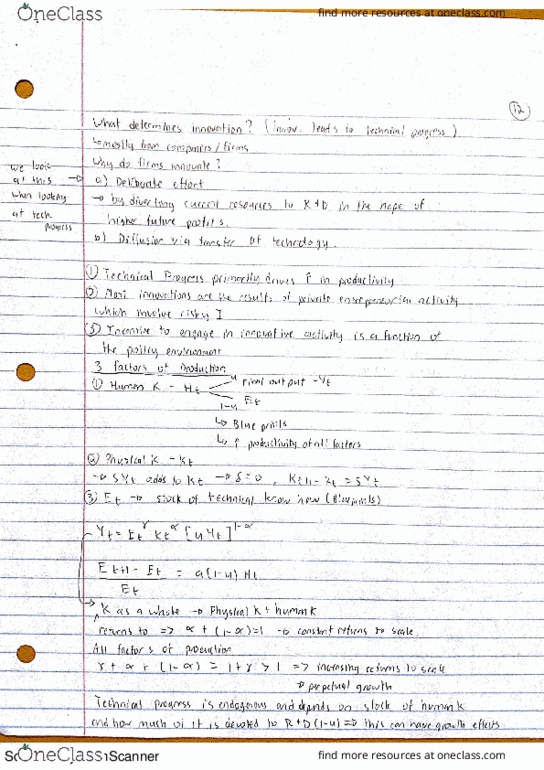 OneClass
find more resources at oneclass.com
12
What determines innovation? (innov. leads to technical progress)
↳ mostly from companies/firms
Why do firms innovate?
we look
at this →
when looking
at tech
progress
a) Deliberate effort
→ by diverting current resources to R+D in the hope of
higher future profits.
b) Diffusion via transfer of technology.
① Technical Progress primarily drives ↑ in productivity
② Most innovations are the results of private entrepreneurial activity
which involve risky I
③ Incentive to engage in innovative activity is a function of
the policy environment
3 factors of Production
① Human K - Ht
u Final output - Yt
1-u Et
↳ Blue prints
↳ ↑ productivity of all factors
② Physical K - Kt
→ sYt adds to Kt → δ=0, Kt+1 - Kt = sYt
③ Et → stock of technical know how (Blueprints)
Yt = Et^γ Kt^α [u Ht]^1-α
Et+1 - Et / Et = a(1-u) Ht
K as a whole → Physical K + human K
returns to => α + (1-α) = 1 → constant returns to scale.
All factors of production
γ + α + (1-α) = 1+γ > 1 => increasing returns to scale
↳ perpetual growth
Technical progress is endogenous and depends on stock of human K
and how much of it is devoted to R+D (1-u) => this can have growth effects
OneClass
Scanner
find more resources at oneclass.com